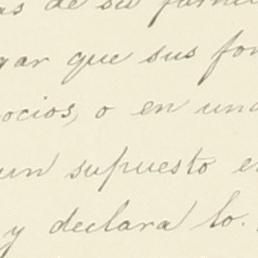 as de su
gar que sus fon
ocios, o en una
un supuesto e
y declara lo.